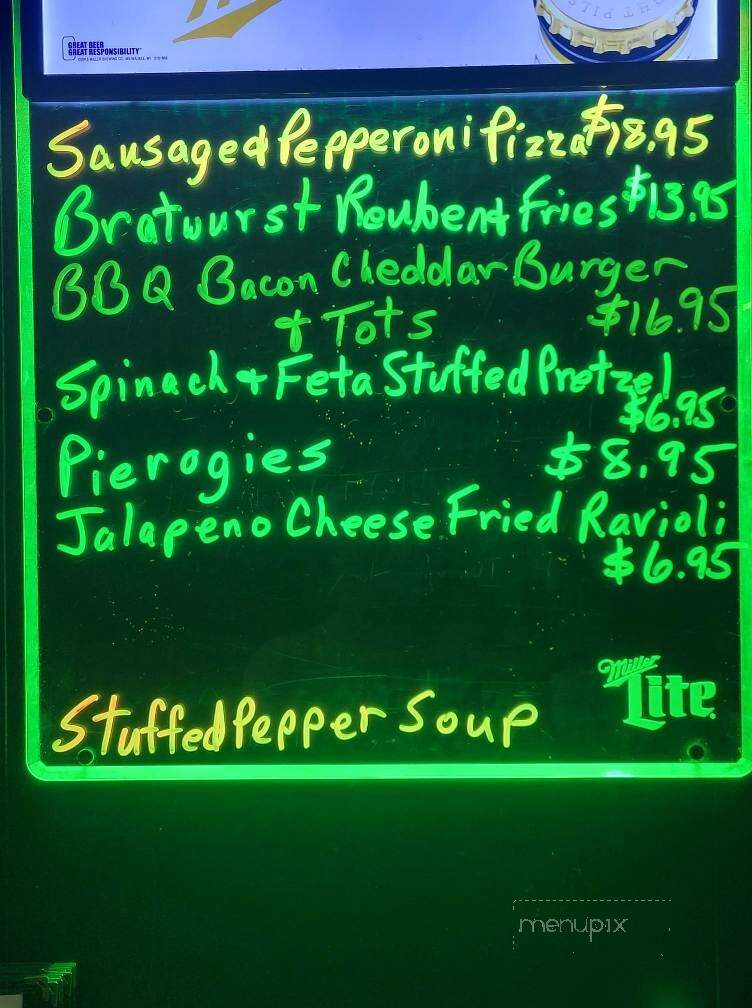 GREAT BEER
GREAT RESPONSIBILITY
Sausage & Pepperoni Pizza $18.95
Bratwurst Reuben & Fries $13.95
BBQ Bacon Cheddar Burger
& Tots $16.95
Spinach & Feta Stuffed Pretzel
$6.95
Pierogies $8.95
Jalapeno Cheese Fried Ravioli
$6.95
Miller
Lite
Stuffed Pepper Soup
menupix